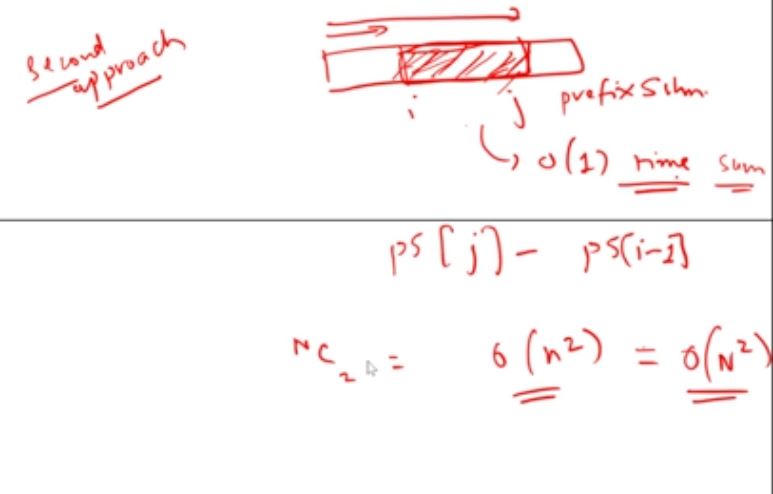 second
approach
i j prefix Sum.
O(1) time sum
ps[j] - ps[i-1]
NC2 = O(n²) = O(N²)